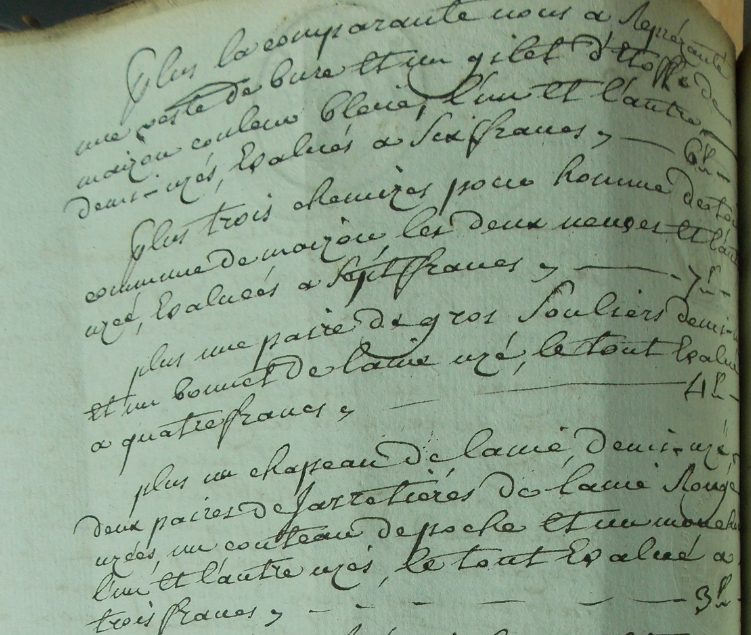 plus la comparante nous a Représenté
une veste de bure Et un gilet d'Etoffe de
maizon couleur bleue, l'un Et l'autre
demi-uzés, Evalués a Six francs, — 6₶ —
plus trois chemizes pour homme de toi
commune de maizon, les deux neuves Et l'aut
uzée, Evaluées a Sept francs, — 7₶ —
plus une paire de gros Souliers demi-u
Et un bonnet de laine uzé, le tout Evalué
a quatre francs, — 4₶ —
plus un chapeau de laine, demi-uzé,
deux paires de Jarretières de laine Rouge
uzées, un couteau de poche Et un mouch
l'un Et l'autre uzés, le tout Evalué a
trois francs, — 3₶ —